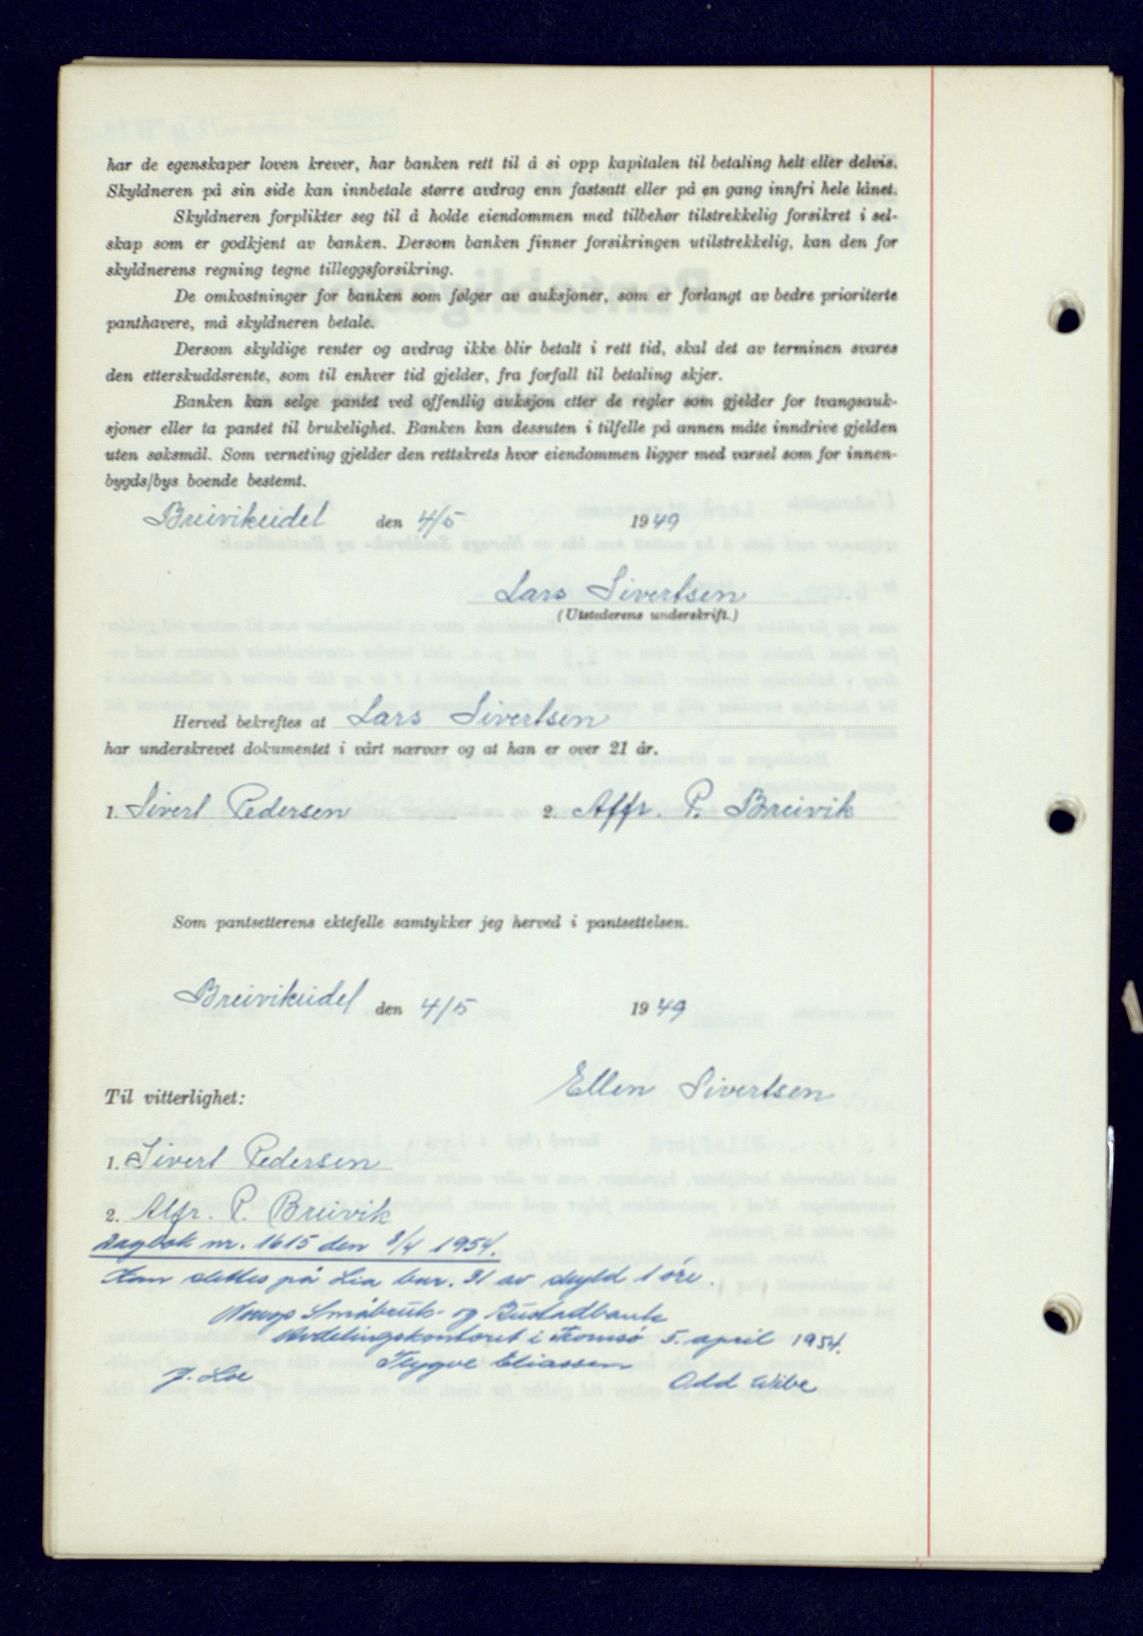 har de egenskaper loven krever, har banken rett til å si opp kapitalen til betaling helt eller delvis.
Skyldneren på sin side kan innbetale større avdrag enn fastsatt eller på en gang innfri hele lånet.
Skyldneren forplikter seg til å holde eiendommen med tilbehør tilstrekkelig forsikret i sel-
skap som er godkjent av banken. Dersom banken finner forsikringen utilstrekkelig, kan den for
skyldnerens regning tegne tilleggsforsikring.
De omkostninger for banken som følger av auksjoner, som er forlangt av bedre prioriterte
panthavere, må skyldneren betale.
Dersom skyldige renter og avdrag ikke blir betalt i rett tid, skal det av terminen svares
den etterskuddsrente, som til enhver tid gjelder, fra forfall til betaling skjer.
Banken kan selge pantet ved offentlig auksjon etter de regler som gjelder for tvangsauk-
sjoner eller ta pantet til brukelighet. Banken kan dessuten i tilfelle på annen måte inndrive gjelden
uten søksmål. Som verneting gjelder den rettskrets hvor eiendommen ligger med varsel som for innen-
bygds/bys boende bestemt.
Breivikeidet den 4/5 1949
Lars Sivertsen
(Utstederens underskrift.)
Herved bekreftes at Lars Sivertsen
har underskrevet dokumentet i vårt nærvær og at han er over 21 år.
1. Sivert Pedersen 2. Alfr. P. Breivik
Som pantsetterens ektefelle samtykker jeg herved i pantsettelsen.
Breivikeidet den 4/5 1949
Ellen Sivertsen
Til vitterlighet:
1. Sivert Pedersen
2. Alfr. P. Breivik
Dagbok nr. 1615 den 8/4 1954.
Kan slettes på Lia bnr. 31 av skyld 1 øre.
Norges Småbruk- og Bustadbank
Avdelingskontoret i Tromsø 5. april 1954.
Trygve Eliassen
J. Loe Odd Wibe